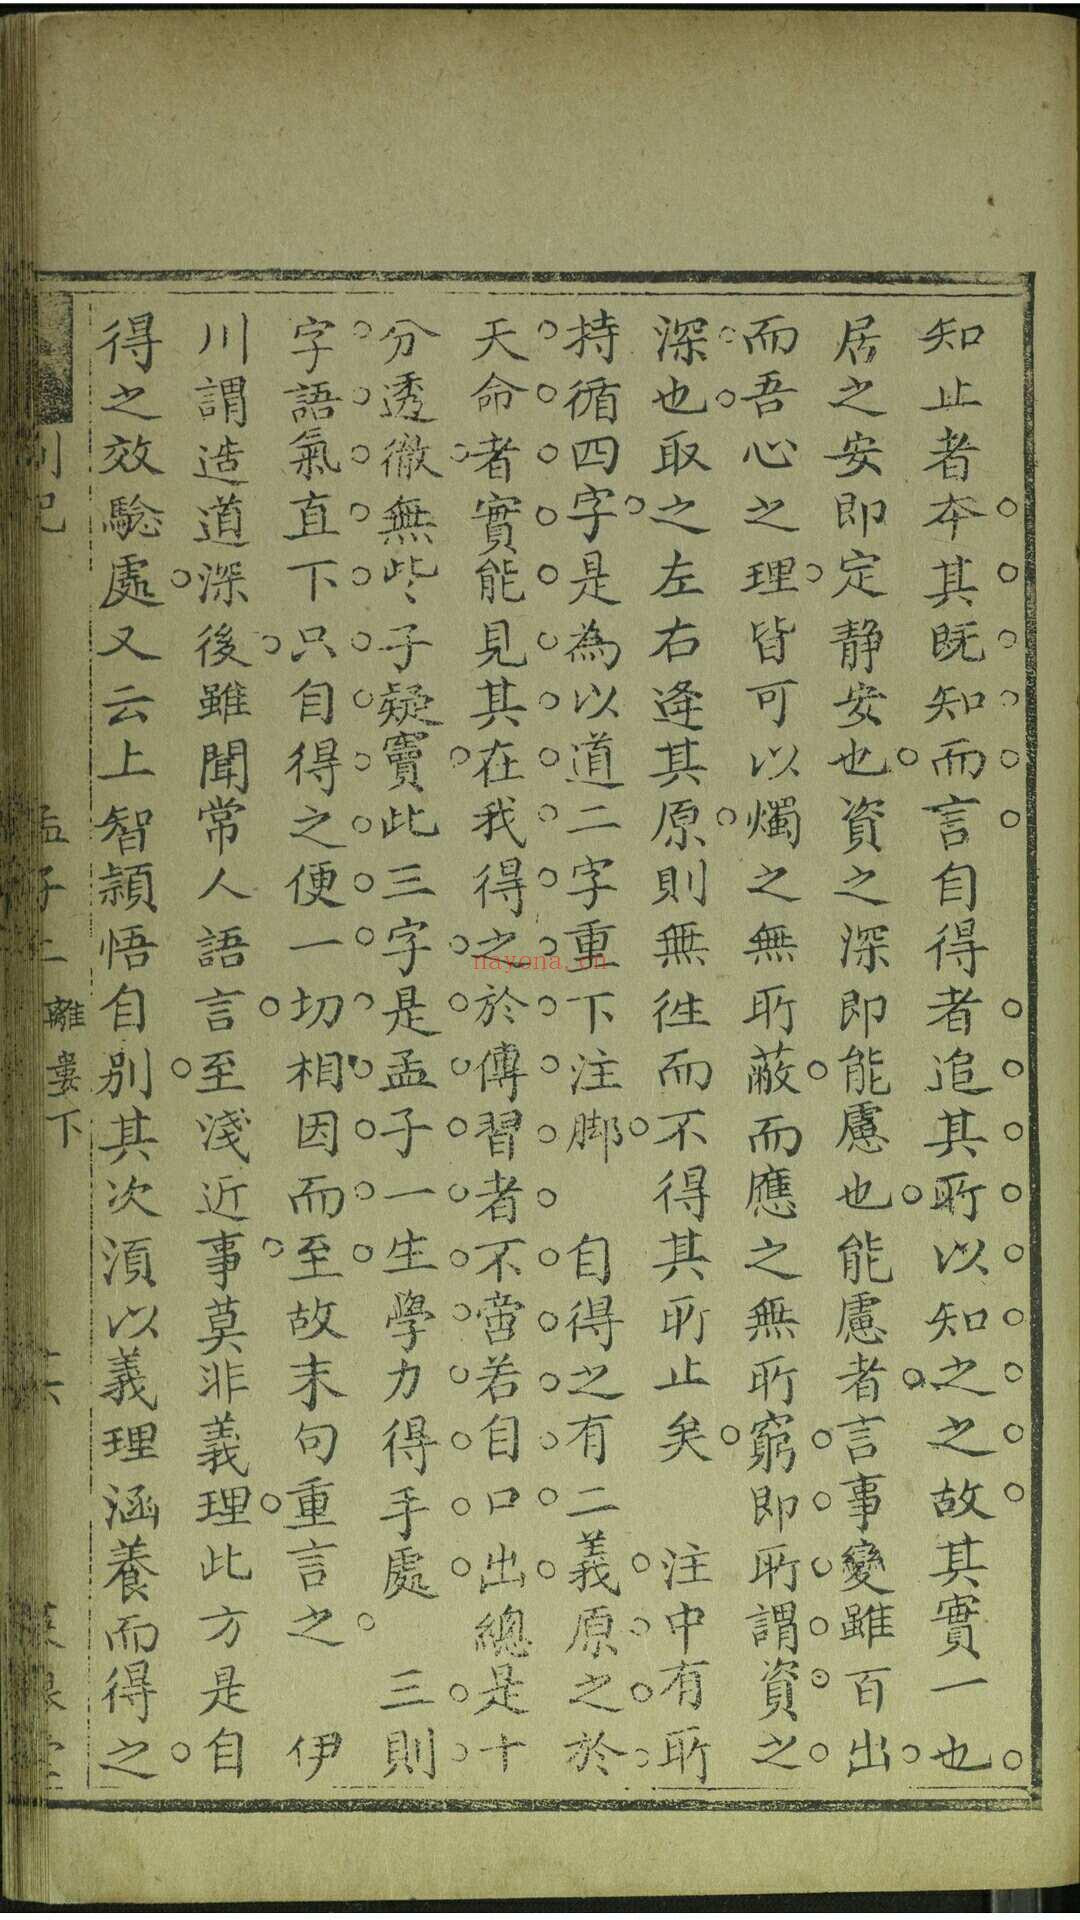 知止者本其既知而言自得者追其所以知之之故其實一也
居之安即定静安也資之深即能慮也能慮者言事變雖百出
而吾心之理皆可以燭之無所蔽而應之無所窮即所謂資之
深也取之左右逢其原則無徃而不得其所止矣　注中有所
持循四字是為以道二字重下注脚　自得之有二義原之於
天命者實能見其在我得之於傳習者不啻若自口出總是十
分透徹無些子疑竇此三字是孟子一生學力得手處　三則
字語氣直下只自得之便一切相因而至故末句重言之　伊
川謂造道深後雖聞常人語言至淺近事莫非義理此方是自
得之效驗處又云上智頴悟自別其次須以義理涵養而得之
離婁下
nayona.cn